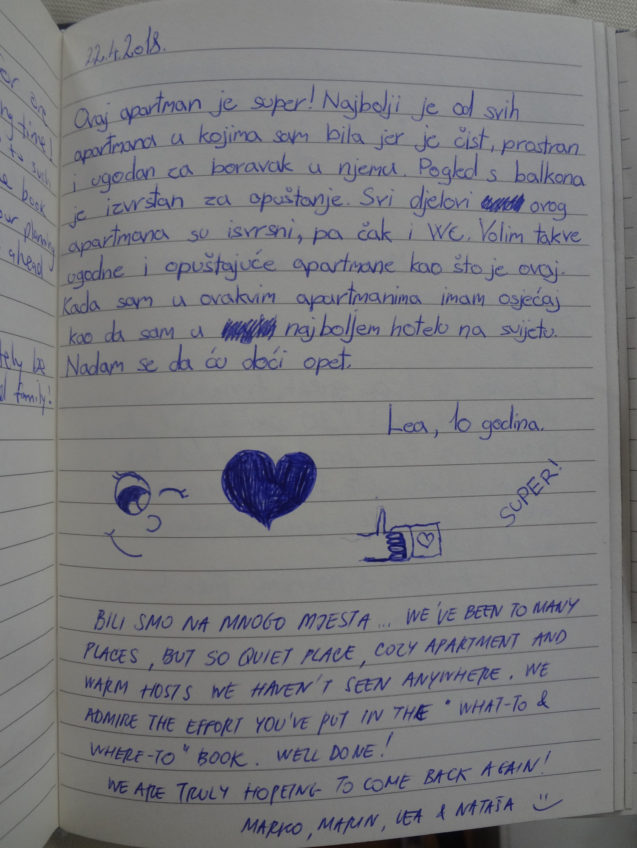 or are
ng time!
to such
e book
our planning
ahead
tely be
d family!
22.4.2018.
Ovaj apartman je super! Najbolji je od svih
apartmana u kojima sam bila jer je čist, prostran
i ugodan za boravak u njemu. Pogled s balkona
je izvrstan za opuštanje. Svi djelovi ovog
apartmana su isvrsni, pa čak i WC. Volim takve
ugodne i opuštajuće apartmane kao što je ovaj.
Kada sam u ovakvim apartmanima imam osjećaj
kao da sam u najboljem hotelu na svijetu.
Nadam se da ću doći opet.
Lea, 10 godina.
SUPER!
BILI SMO NA MNOGO MJESTA... WE'VE BEEN TO MANY
PLACES, BUT SO QUIET PLACE, COZY APARTMENT AND
WARM HOSTS WE HAVEN'T SEEN ANYWHERE. WE
ADMIRE THE EFFORT YOU'VE PUT IN THE "WHAT-TO &
WHERE-TO" BOOK. WELL DONE!
WE ARE TRULY HOPEING TO COME BACK AGAIN!
MARKO, MARIN, LEA & NATAŠA